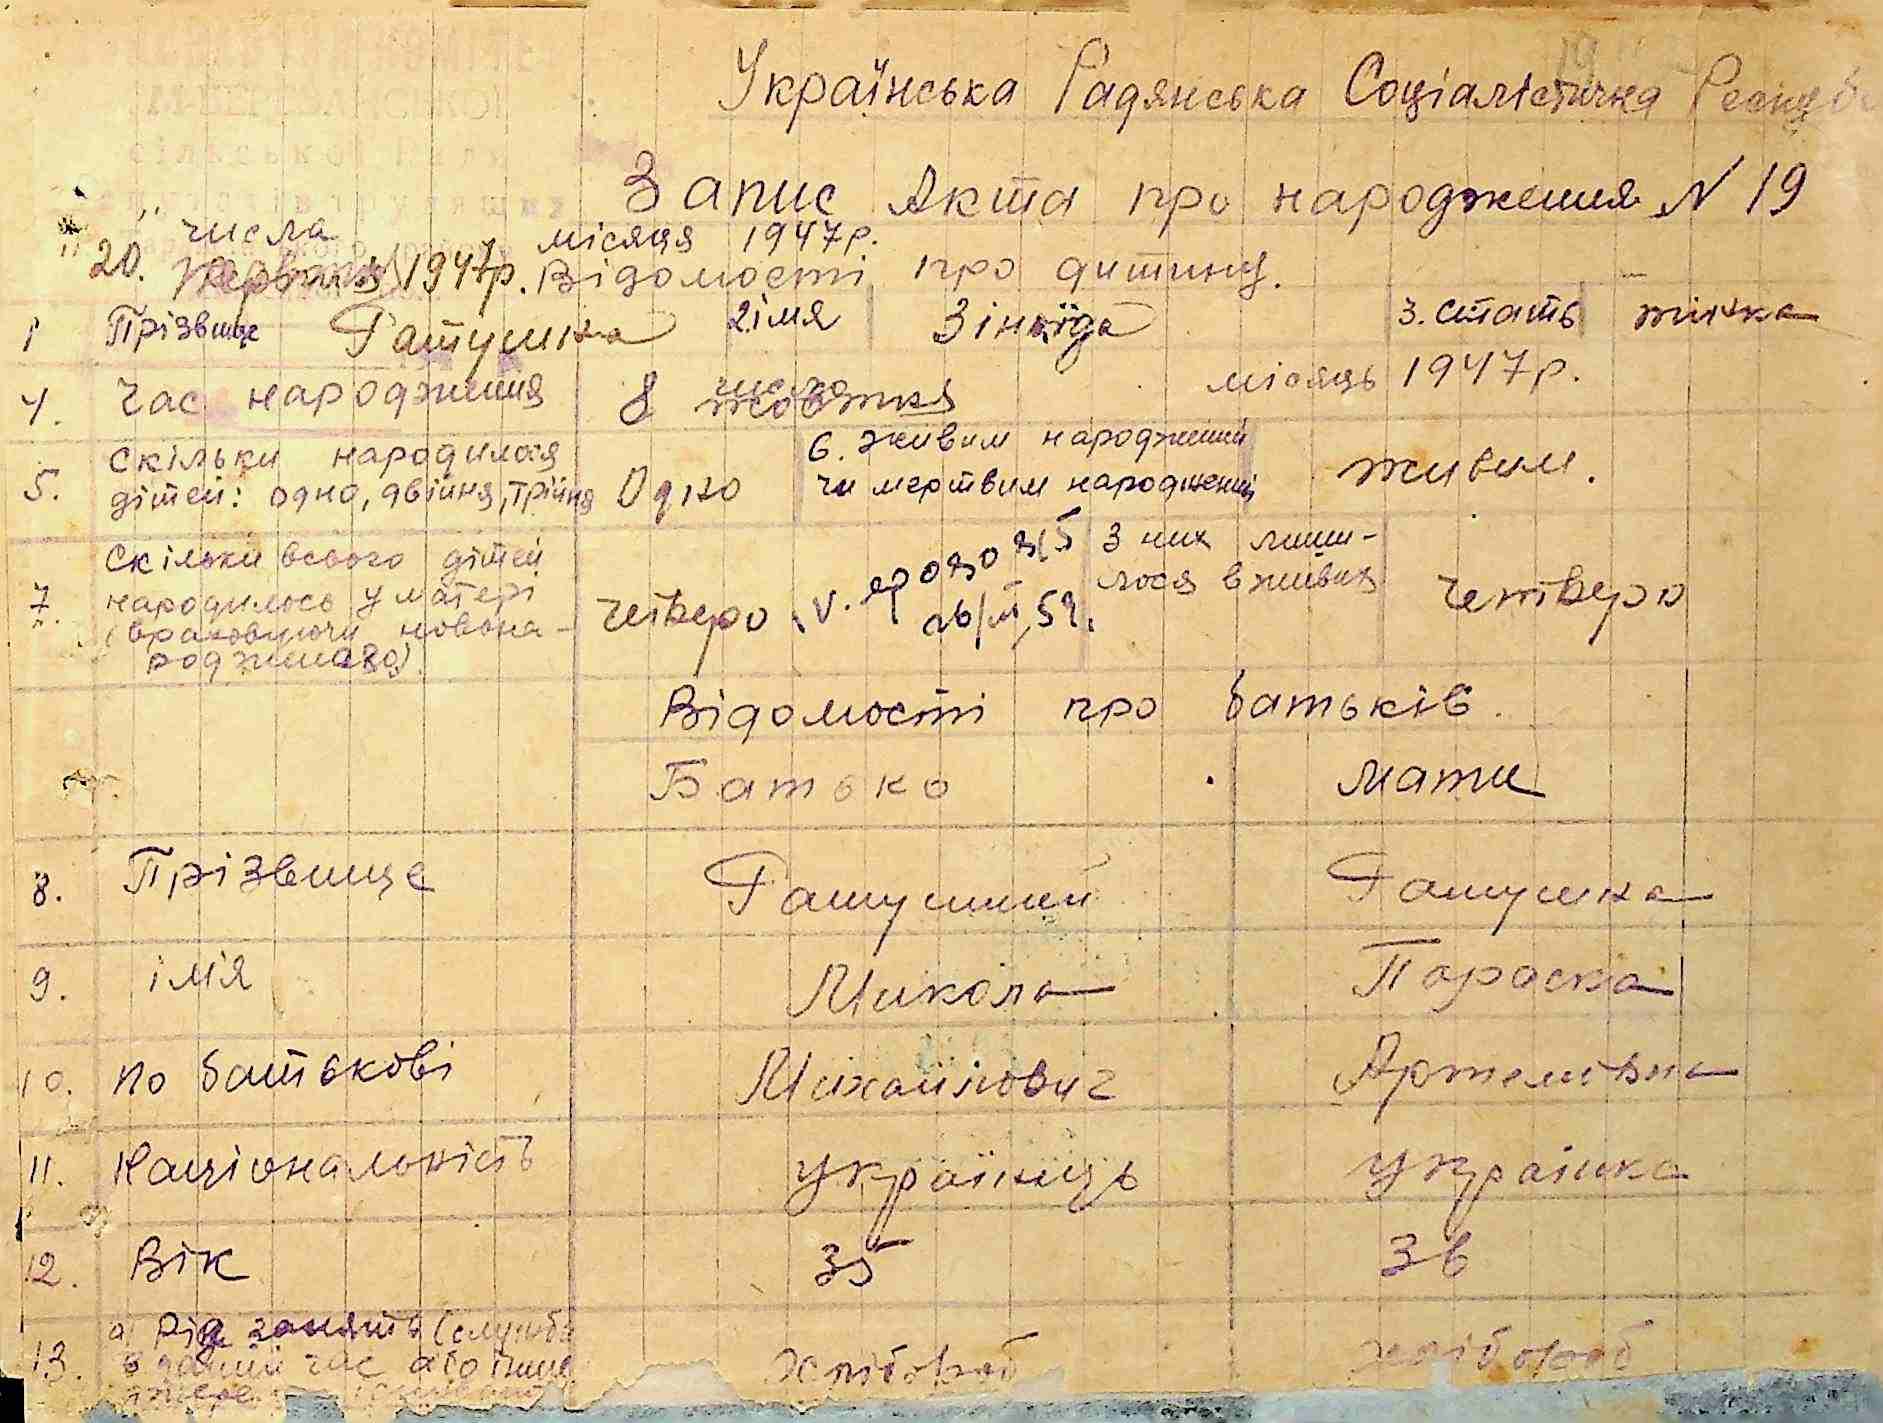 Українська Радянська Соціалістична
Запис Акта про народження N 19
" " числа місяця 1947р.
20. 1947р. Відомості про дитину.
1 Прізвище Гатушка 2 імя Зінаїда 3. стать жінка
4. Час народження 8 число жовтня місяць 1947р.
5. Скільки народилося дітей: одно, двійня, трійня Одно 6. живим народжений чи мертвим народжений живим.
7. Скільки всього дітей народилось у матері (враховуючи новонародженого) четверо З них лишилося в живих четверо
Відомості про батьків.
Батько Мати
8. Прізвище Гатушкий Гатушка
9. імя Микола Параска
10. по батькові Михайлович Артемівна
11. Національність українець українка
12. Вік 35 36
13. а) Рід занять (служба
в даний час або інше
хлібороб хлібороб